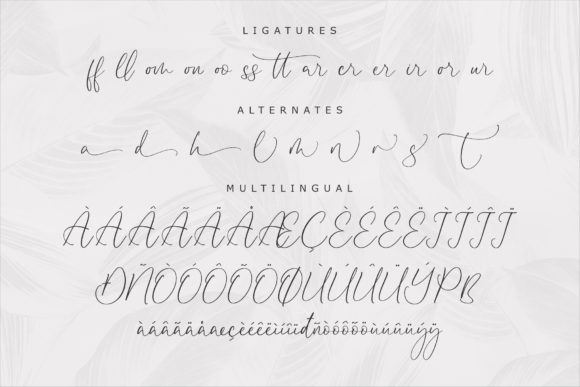 LIGATURES
ff ll om on oo ss tt ar cr er ir or ur
ALTERNATES
a d h l m n r s t
MULTILINGUAL
ÀÁÂÃÄÅÆÇÈÉÊËÌÍÎÏ
ÐÑÒÓÔÕÖØÙÚÛÜÝÞß
àáâãäåæçèéêëìíîïđñòóôõöùúûüýÿ